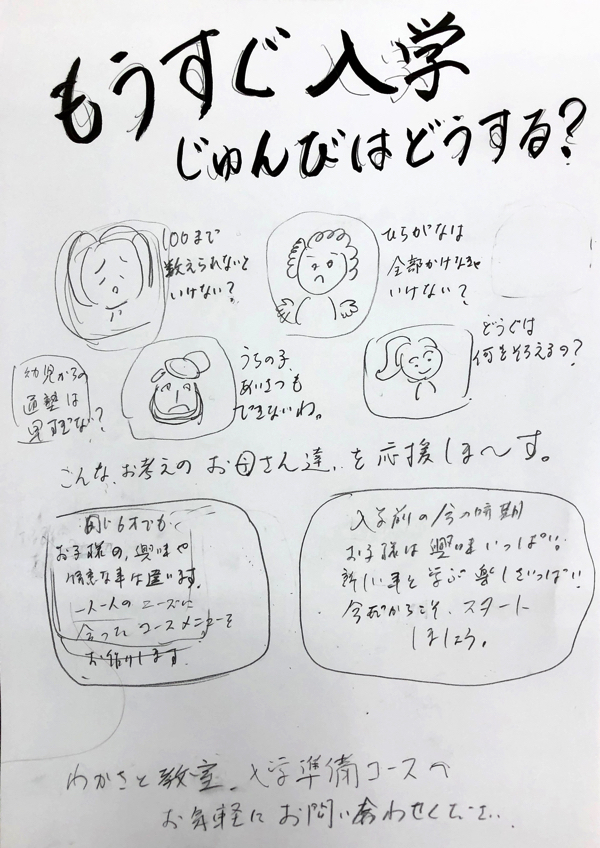 もうすぐ入学
じゅんびはどうする?
100まで
数えられないと
いけない?
ひらがなは
全部かけなきゃ
いけない?
幼児からの
通塾は
早すぎない?
うちの子
あいさつも
できないわ。
どうぐは
何をそろえるの?
こんな、お考えの お母さん達、を応援しま〜す。
同じ6才でも
お子様の、興味や
得意な事は違います。
一人一人の ニーズに
合った コースメニューを
お作りします
入学前の今の時期
お子様は 興味いっぱい!
新しい事を学ぶ 楽しさいっぱい
今だからこそ、スタート
しましょう。
わかさと教室、入学準備コースへ
お気軽に お問い合わせください。